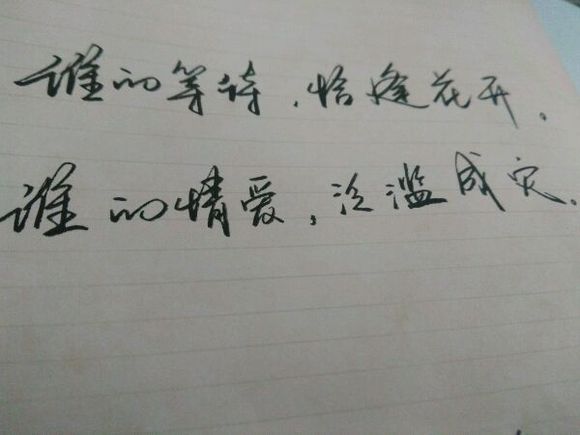 谁的等待,恰逢花开。
谁的情爱,泛滥成灾。